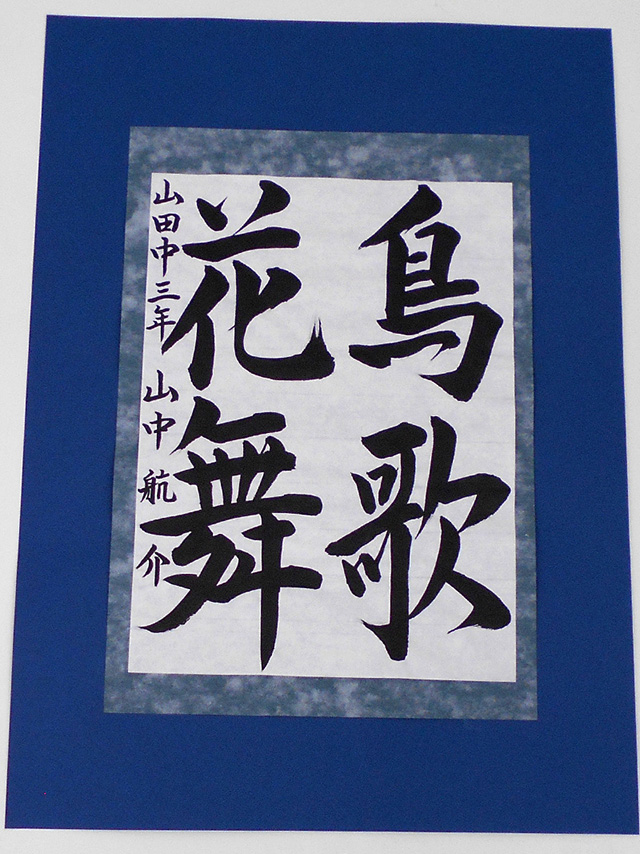 鳥歌
花舞
山田中三年 山中航介